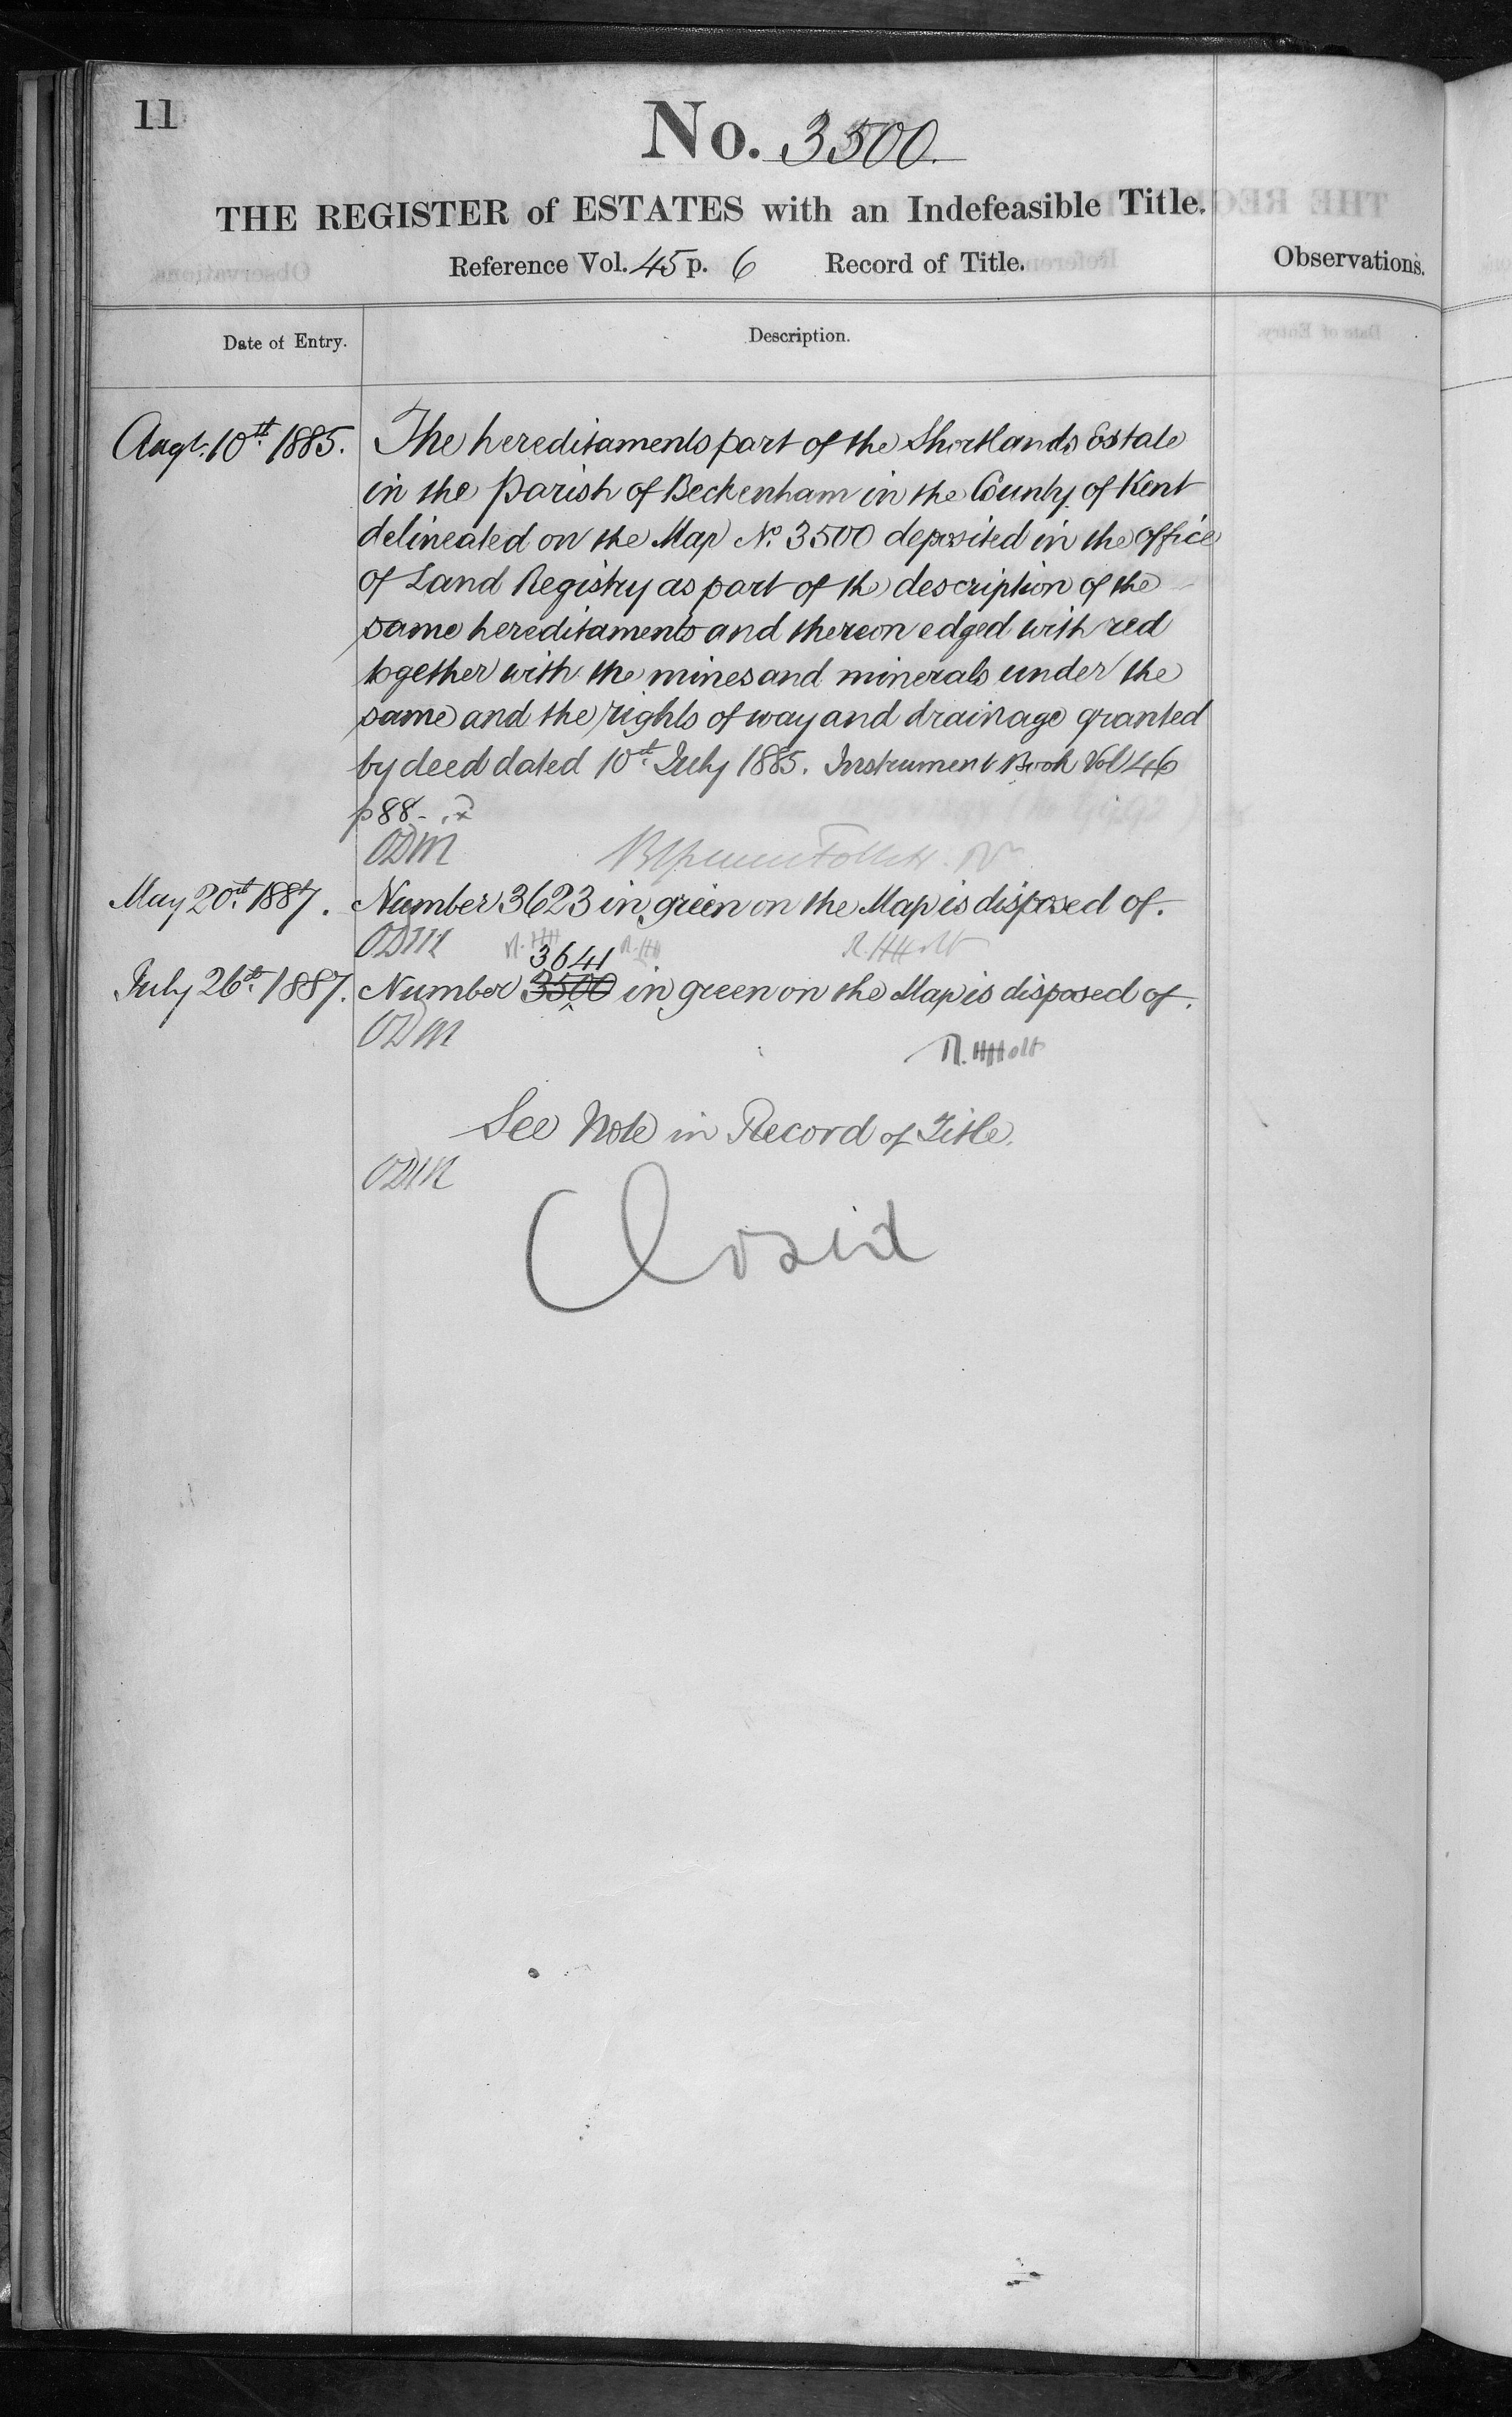 11
No. 3500.
THE REGISTER of ESTATES with an Indefeasible Title.
Reference Vol. 45 p. 6 Record of Title.
Observations.
Date of Entry.
Description.
Augt. 10th 1885. The hereditaments part of the Shortlands Estate
in the Parish of Beckenham in the County of Kent
delineated on the Map No. 3500 deposited in the office
of Land Registry as part of the description of the
same hereditaments and thereon edged with red
together with the mines and minerals under the
same and the rights of way and drainage granted
by deed dated 10th July 1885. Instrument Book Vol 46
p 88
ODM
May 20th 1887. Number 3623 in green on the Map is disposed of.
ODM R.HH R.HH R.HHolt
3641
July 26th 1887. Number 3500 in green on the Map is disposed of.
ODM
R.HHolt
See Note in Record of Title.
ODM
Closed